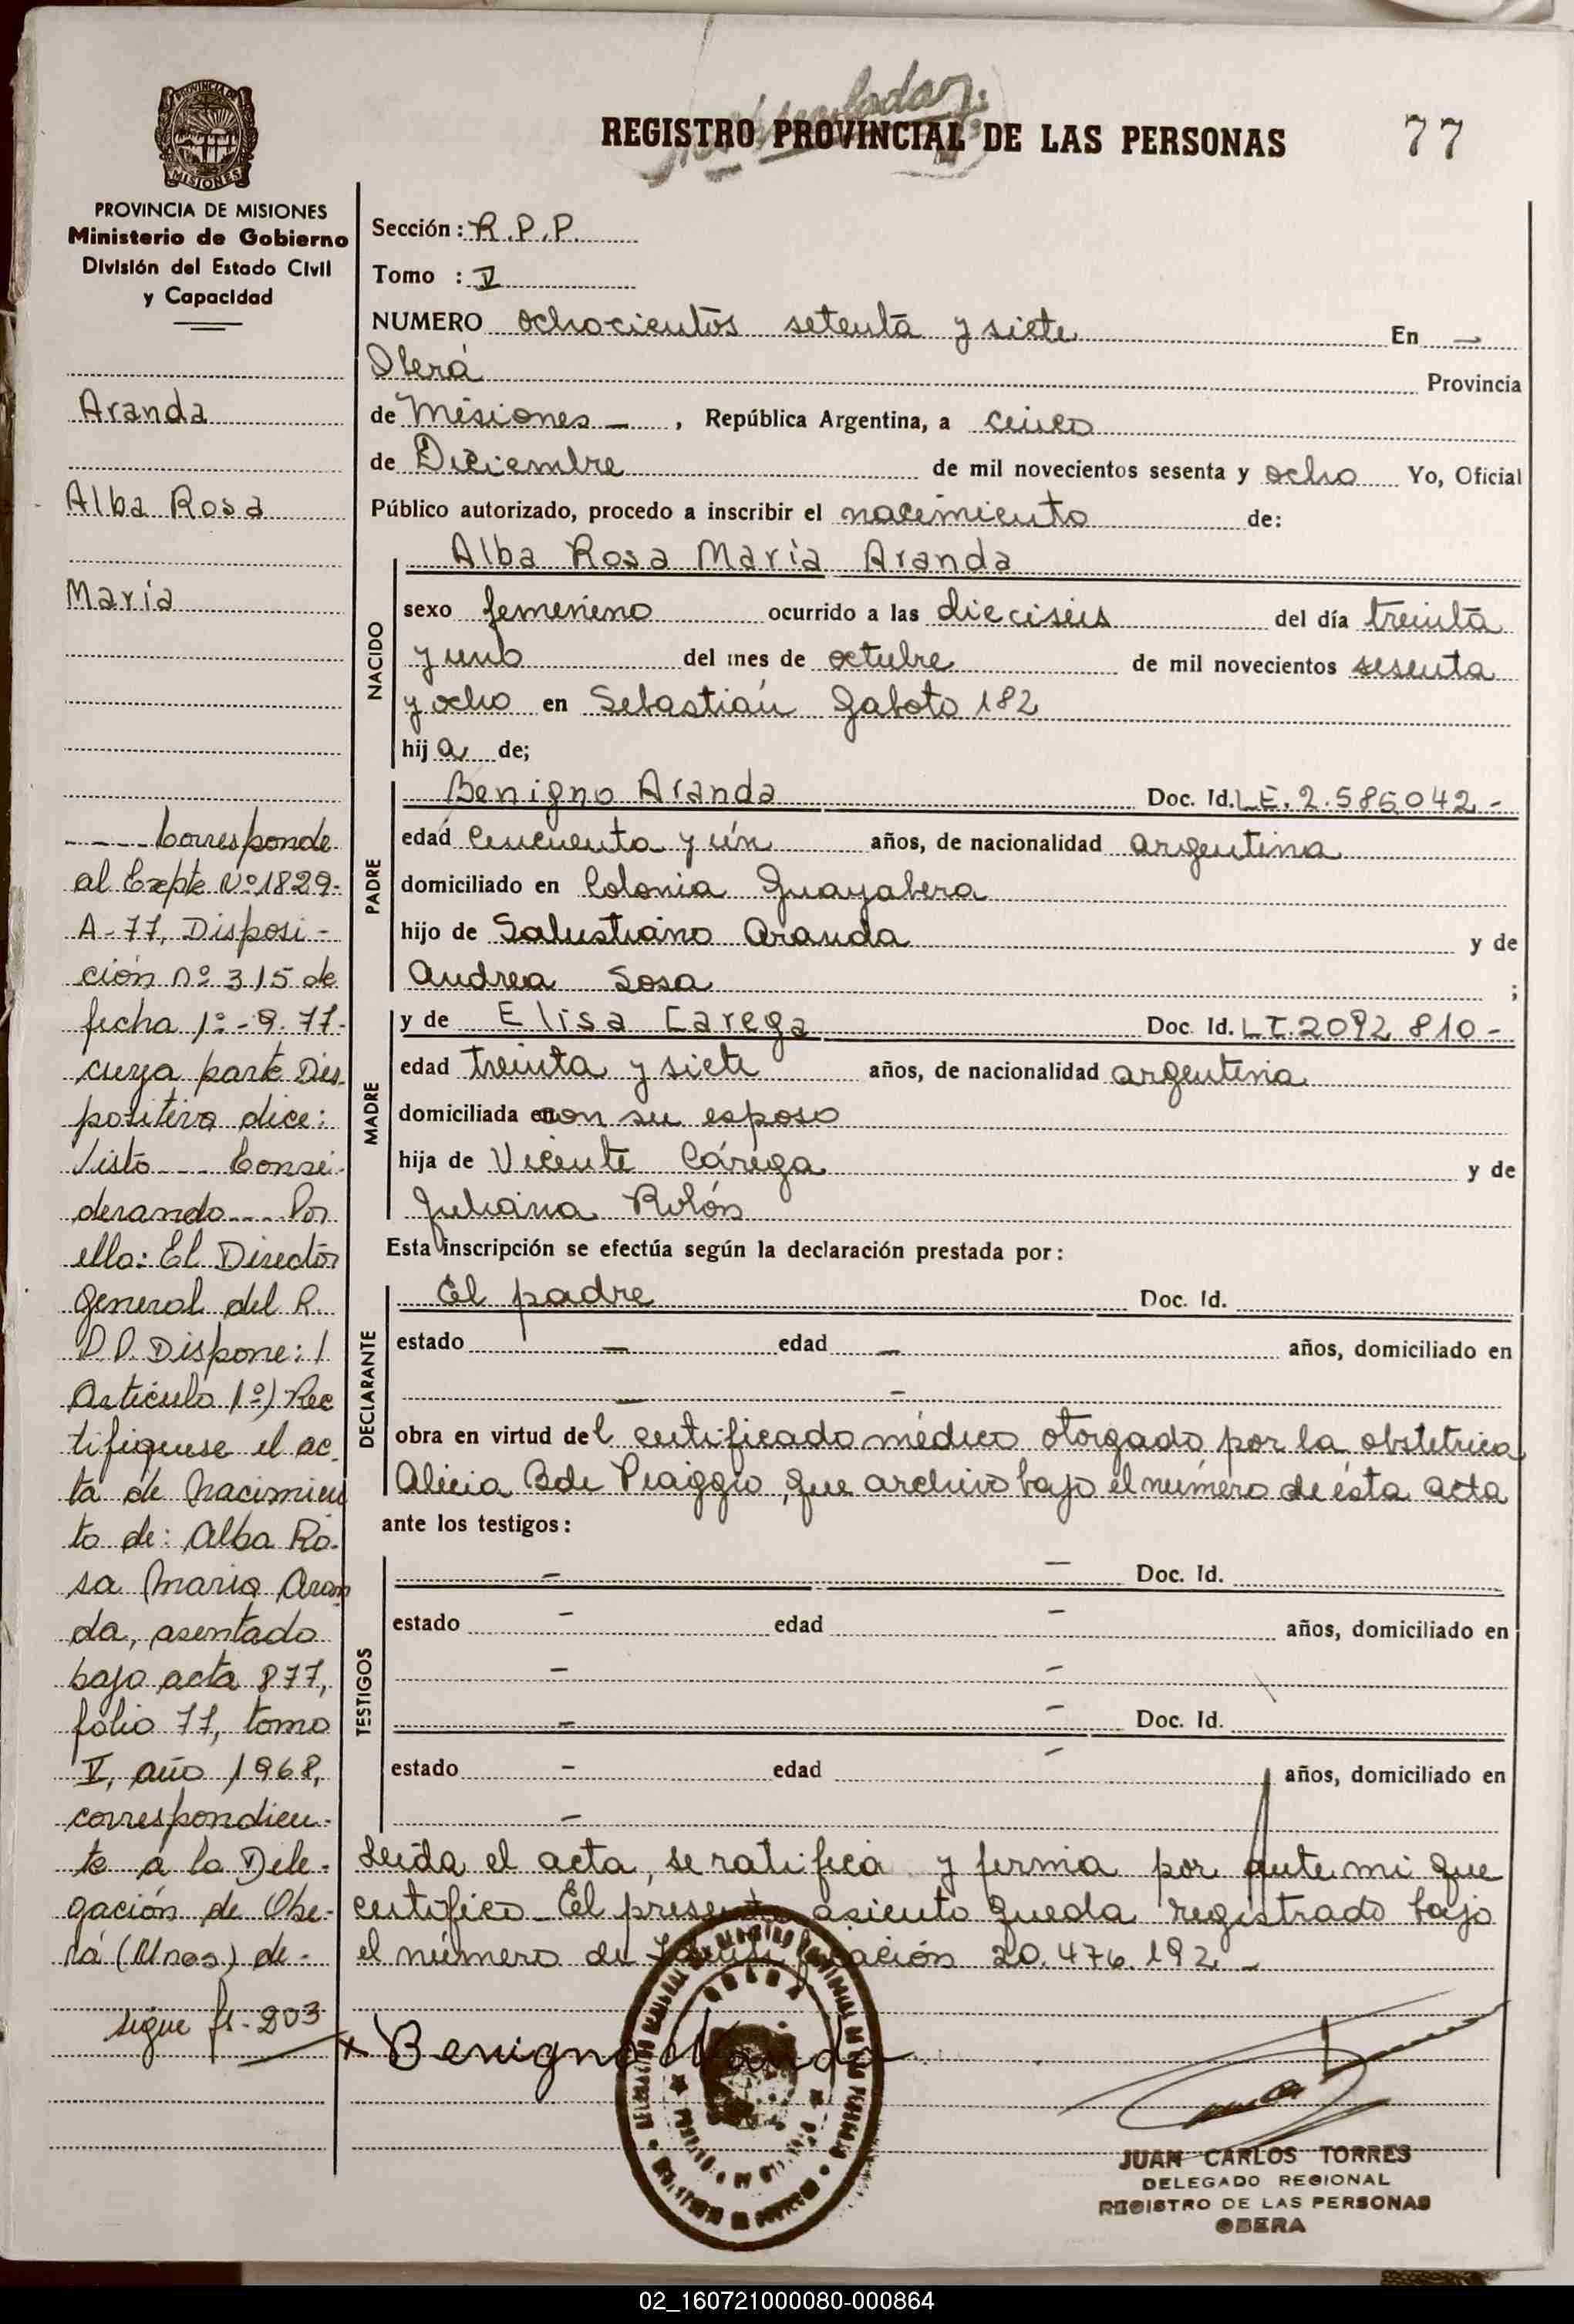 REGISTRO PROVINCIAL DE LAS PERSONAS
77
PROVINCIA DE MISIONES
Ministerio de Gobierno
División del Estado Civil
y Capacidad
Aranda
Alba Rosa
María
---- Corresponde
al Expte Nº 1829-
A-77, Disposi-
ción nº 315 de
fecha 1º-9-77-
cuya parte Dis-
positiva dice:
Visto --- Consi-
derando --- Por
ello: El Director
General del R.
P.P. Dispone: /
Artículo 1º) Rec
tifíquese el ac-
ta de Nacimien
to de: Alba Ro-
sa María Aran
da, asentado
bajo acta 877,
folio 77, tomo
V, año 1968,
correspondien-
te a la Dele-
gación de Obe-
rá (Mnes) de-
sigue fs. 203
Sección: R.P.P.
Tomo : V
NUMERO ochocientos setenta y siete En —
Oberá Provincia
de Misiones — , República Argentina, a cinco
de Diciembre de mil novecientos sesenta y ocho Yo, Oficial
Público autorizado, procedo a inscribir el nacimiento de:
NACIDO
Alba Rosa María Aranda
sexo femenino ocurrido a las dieciséis del día treinta
y uno del mes de octubre de mil novecientos sesenta
y ocho en Sebastián Gaboto 182
hija de;
PADRE
Benigno Aranda Doc. Id. L.E. 2.585.042 -
edad cincuenta y un años, de nacionalidad argentina
domiciliado en Colonia Guayabera
hijo de Salustiano Aranda y de
Andrea Sosa ;
MADRE
y de Elisa Carega Doc. Id. L.C. 2092.810 -
edad treinta y siete años, de nacionalidad argentina
domiciliada en con su esposo
hija de Vicente Cárega y de
Juliana Rolón
Esta inscripción se efectúa según la declaración prestada por:
DECLARANTE
El padre Doc. Id.
estado — edad — años, domiciliado en
— —
obra en virtud del certificado médico otorgado por la obstetrica
Alicia B de Piaggio, que archivo bajo el número de ésta acta
ante los testigos:
TESTIGOS
— — Doc. Id.
estado — edad — años, domiciliado en
— —
— — Doc. Id.
estado — edad — años, domiciliado en
—
Leída el acta, se ratifica y firma por ante mi que
certifico. El presente asiento queda registrado bajo
el número de Identificación 20.476.192 -
x Benigno Aranda
JUAN CARLOS TORRES
DELEGADO REGIONAL
REGISTRO DE LAS PERSONAS
OBERA
02_160721000080-000864